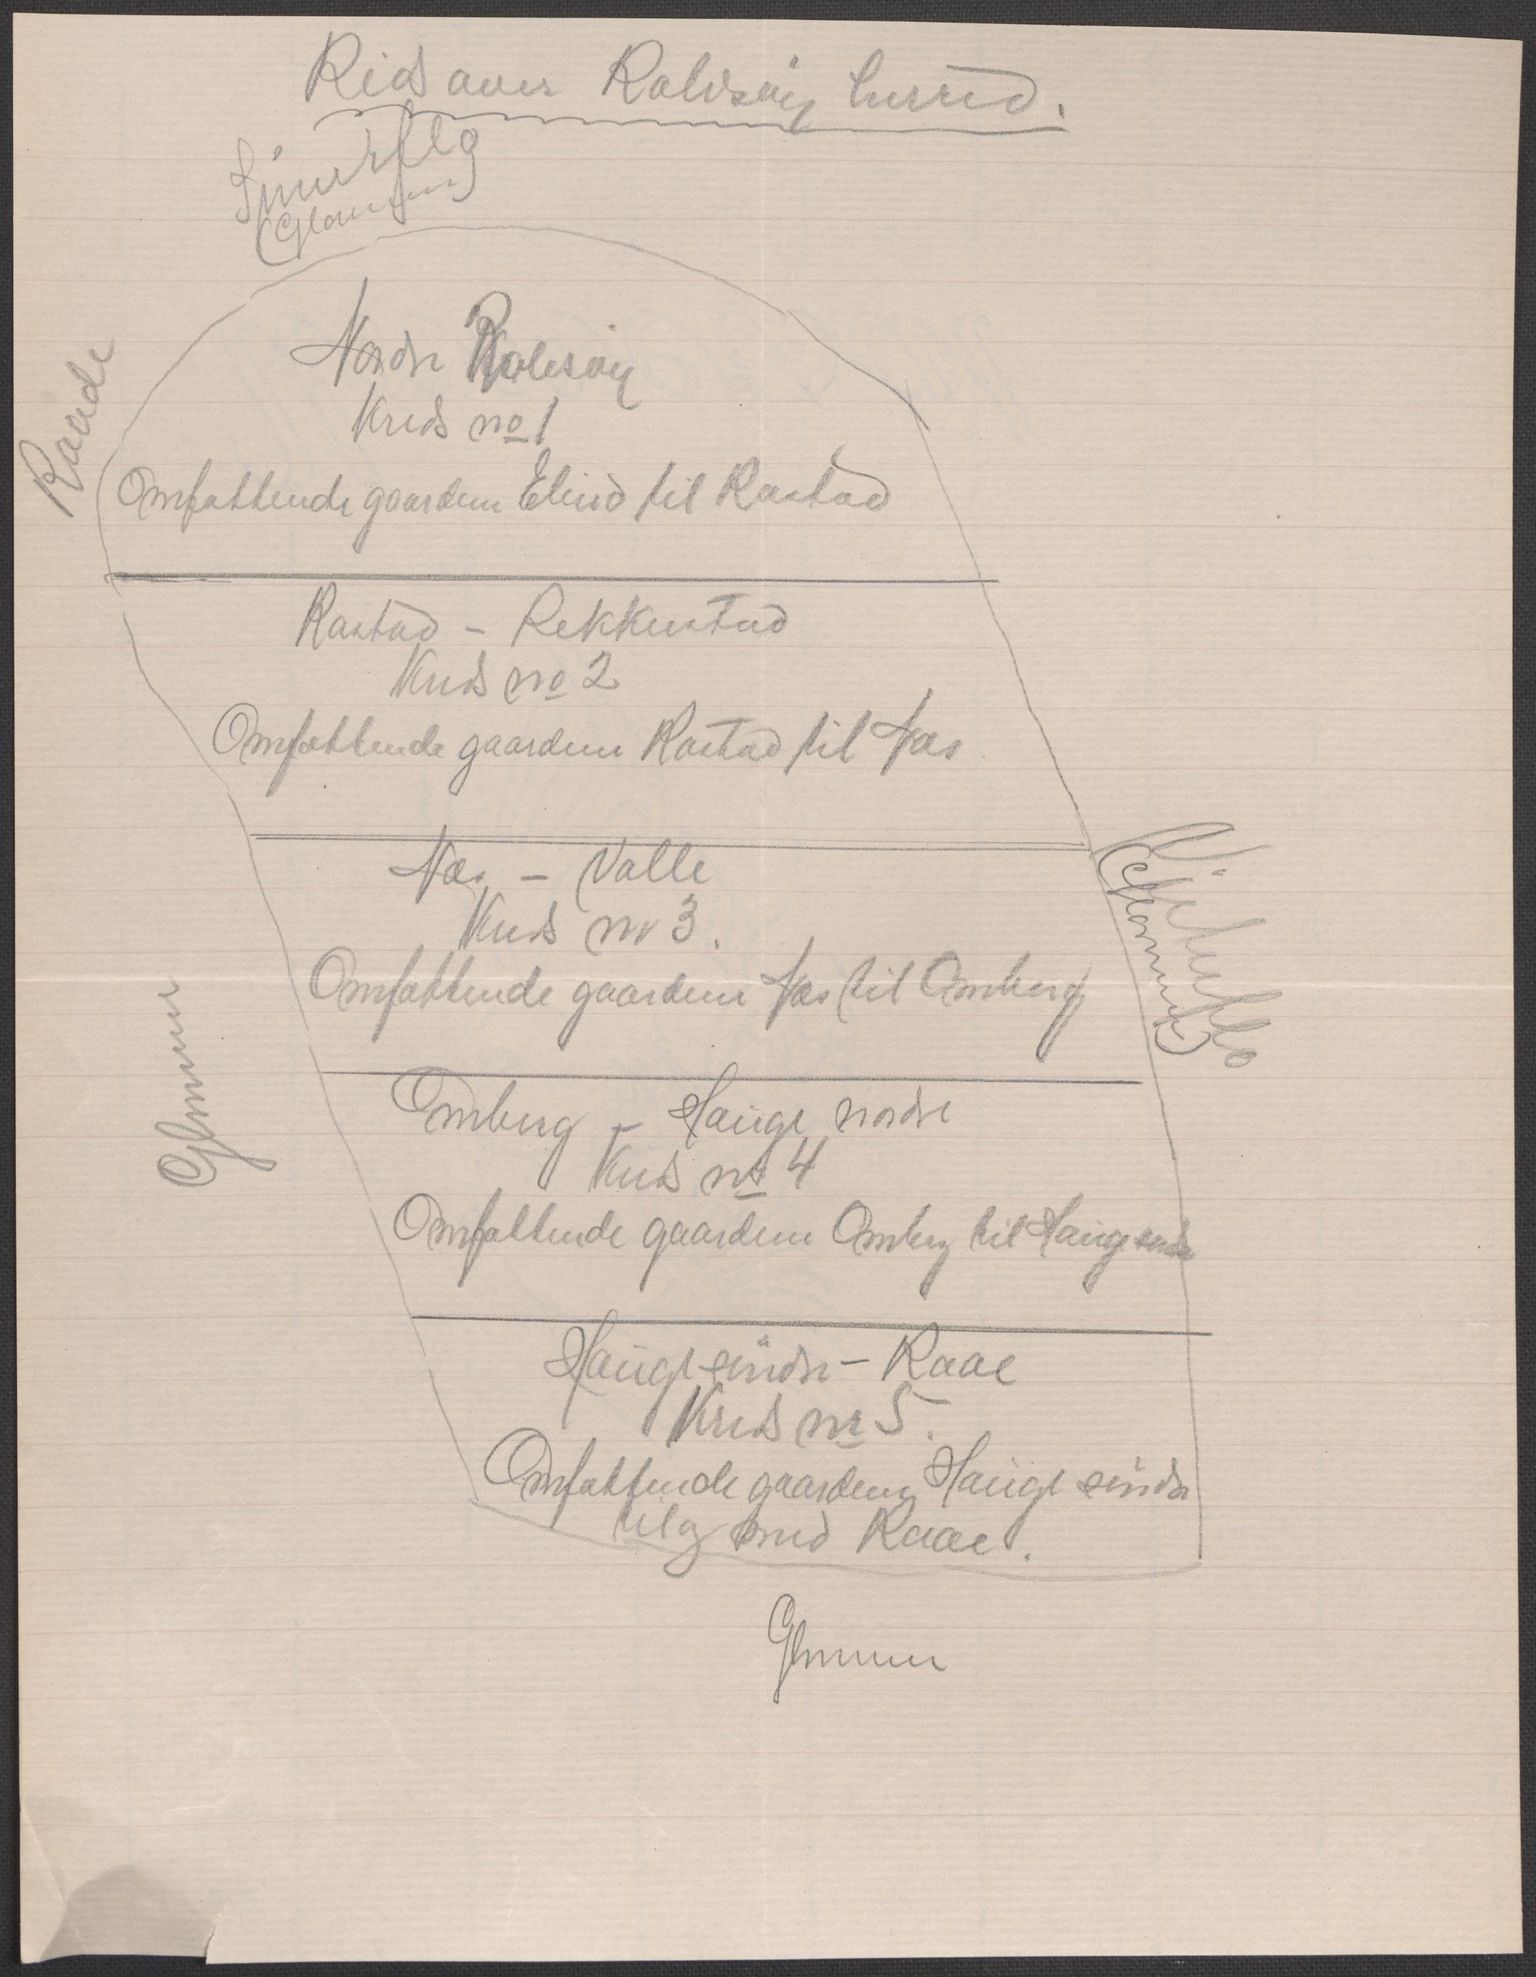 Rids over Rolvsøy herred.
(Glommen)
Raade
Nordre Rolvsøy
Kreds no 1
Omfattende gaardene til Rostad
Rostad - Rekkustad
Kreds no 2
Omfattende gaardene Rostad til Næs
Næs - Valle
Kreds nr 3.
Omfattende gaardene Næs til Omberg
(Glommen)
Glemmen
Omberg - Hauge nordre
Kreds no 4
Omfattende gaardene Omberg til Hauge søndre
Hauge søndre - Raae
Kreds nr 5.
Omfattende gaardene Hauge søndre
til og med Raae.
Glemmen